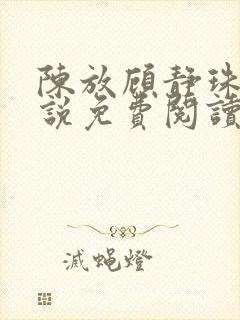 陳放顧靜珠
說免費閱讀
滅蝇燈